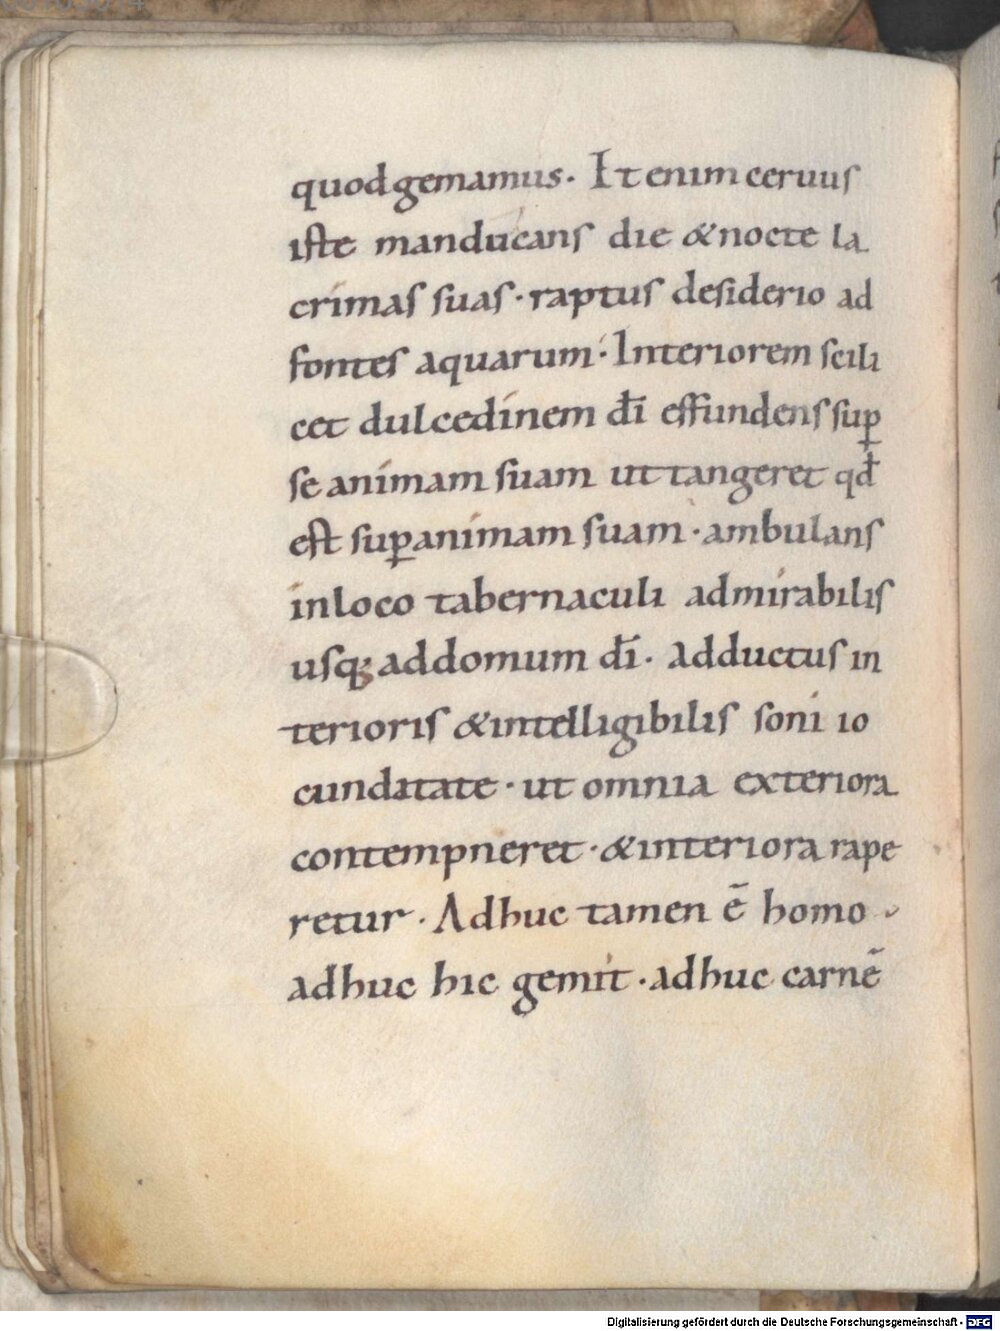 quod gemamus· Et enim ceruus
iste manducans die & nocte la
crimas suas· raptus desiderio ad
fontes aquarum· Interiorem scili
cet dulcedinem dī effundens sup̱
se animam suam ut tangeret qđ
est sup̱ animam suam· ambulans
in loco tabernaculi admirabilis
usq; ad domum dī· Adductus in
terioris & intelligibilis soni io
cunditate· ut omnia exteriora
contempneret· & interiora rape
retur· Adhuc tamen ē homo
adhuc hic gemit· adhuc carnē
Digitalisierung gefördert durch die Deutsche Forschungsgemeinschaft - DFG